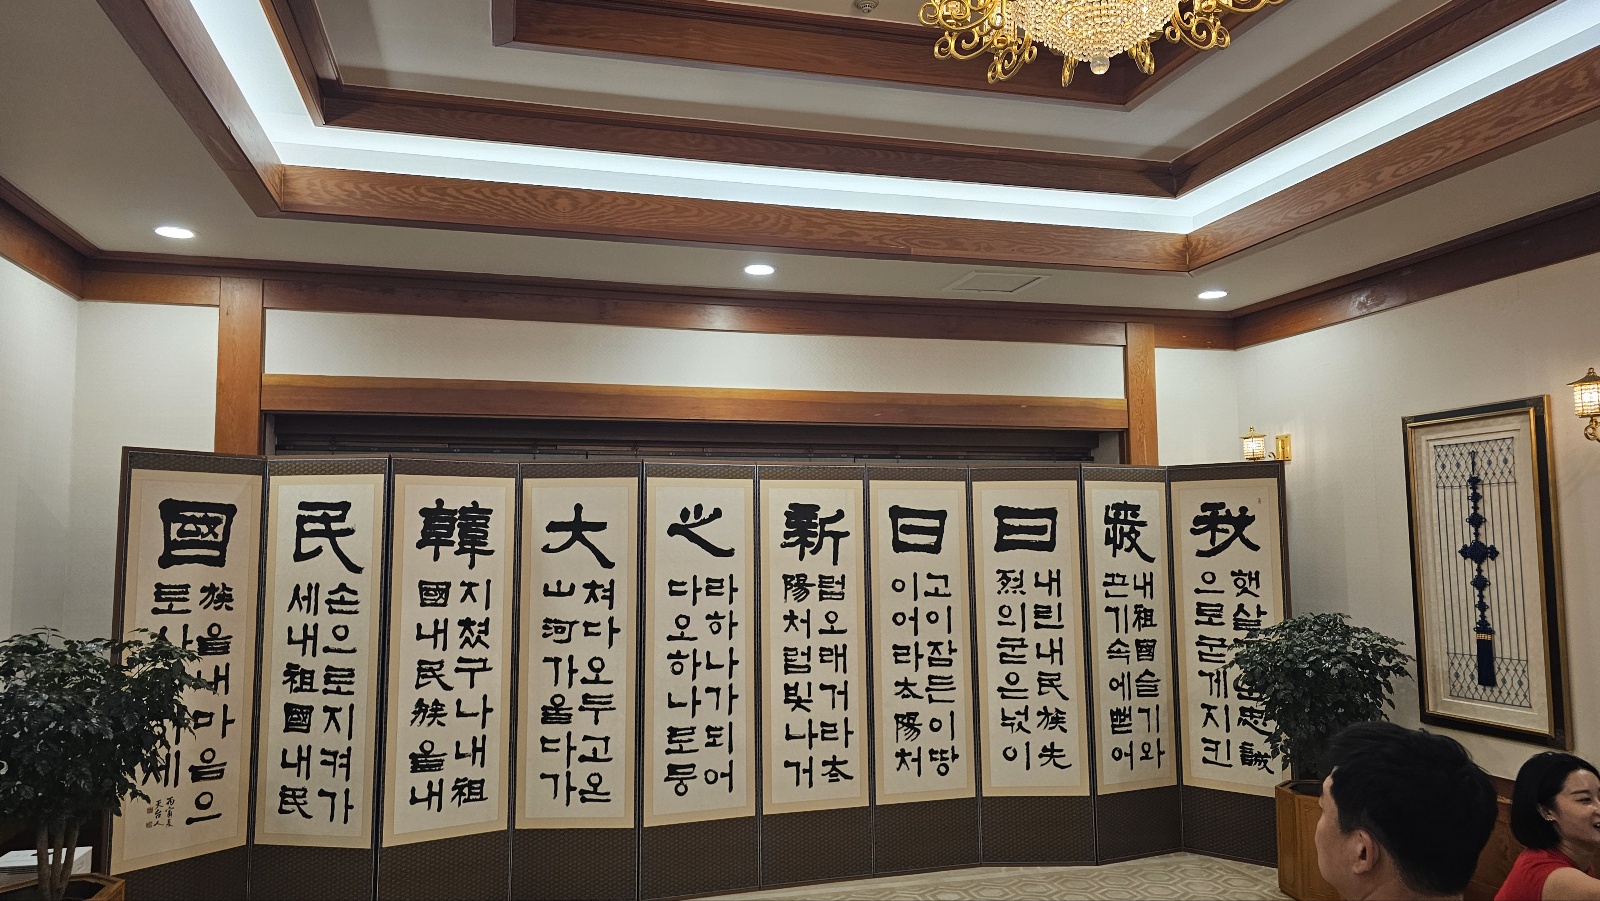 秋
햇살 忠誠
으로굳게지킨
내祖國슬기와
끈기속에뻗어
日
내린내民族先
烈의굳은넋이
日
고이잠든이땅
이어라太陽처
新
럼오래거라太
陽처럼빛나거
心
라하나가되어
다오하나로뭉
大
쳐다오두고온
山河가을다가
韓
지쳤구나내祖
國내民族을내
民
손으로지켜가
세내祖國내民
國
族을내마음으
로 세